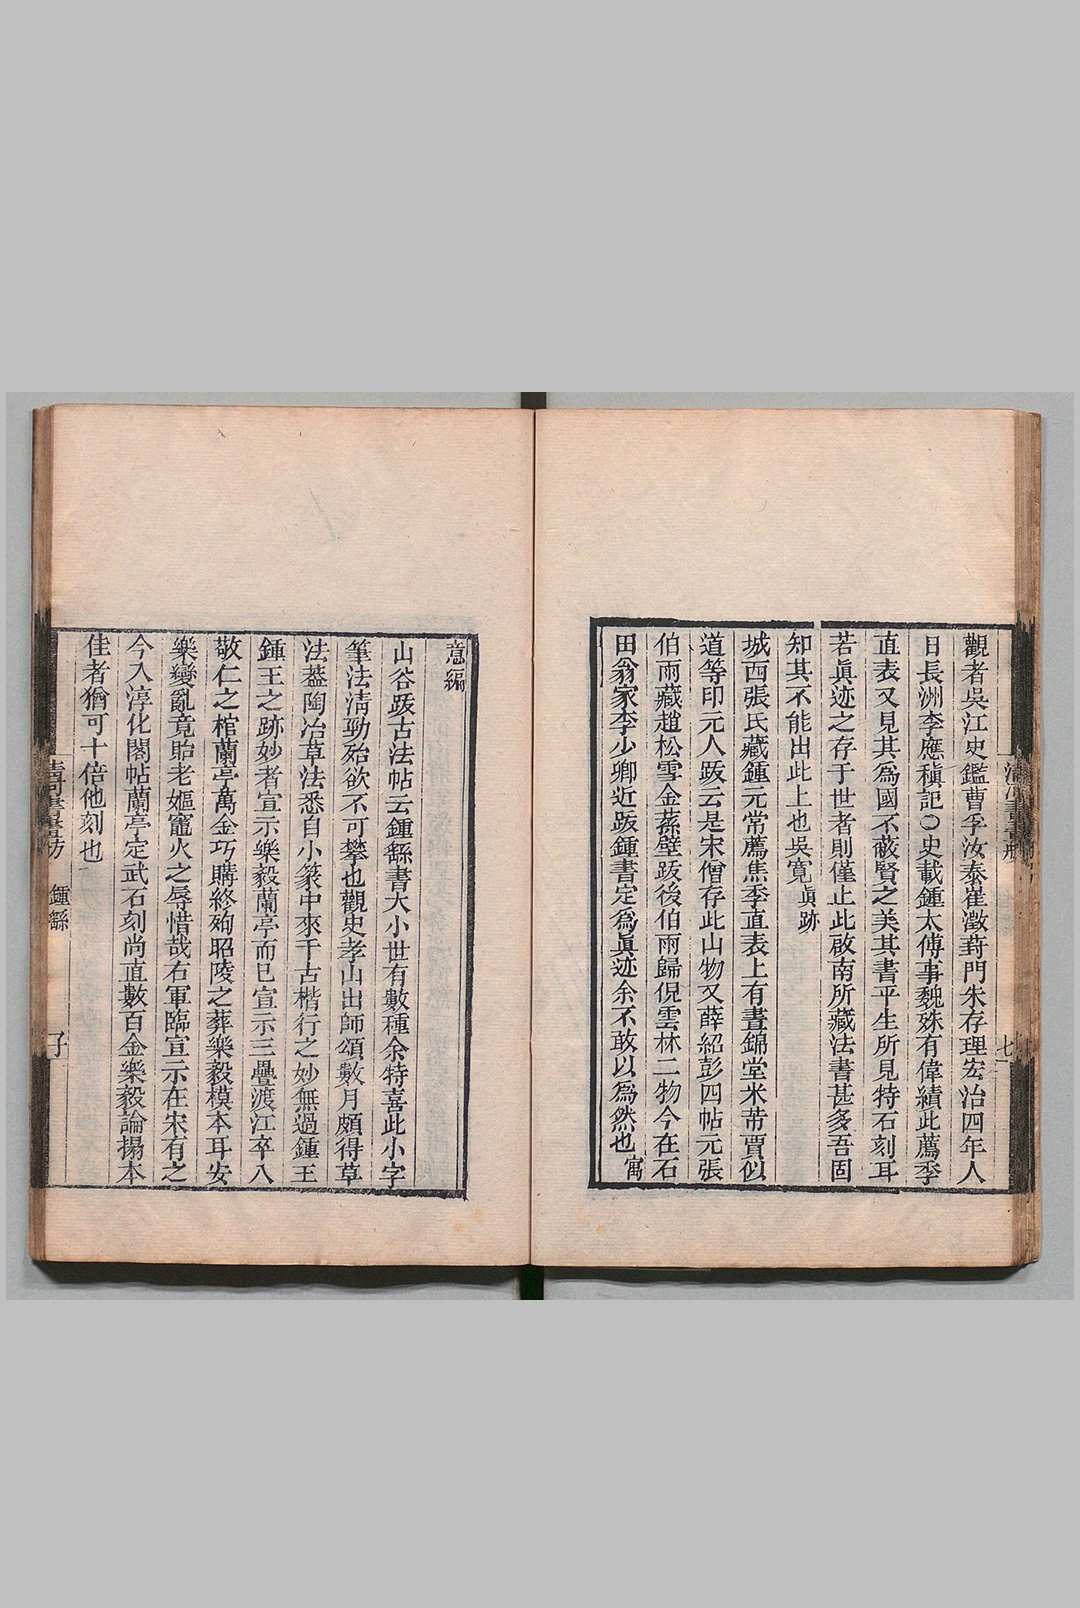 觀者吳江史鑑曹孚汝泰崔澂葑門朱存理宏治四年人
日長洲李應稹記○史載鍾太傅事魏殊有偉績此薦季
直表又見其爲國不蔽賢之美其書平生所見特石刻耳
若眞迹之存于世者則僅止此啟南所藏法書甚多吾固
知其不能出此上也吳寬眞跡
城西張氏藏鍾元常薦焦季直表上有晝錦堂米芾賈似
道等印元人跋云是宋僧存此山物又薛紹彭四帖元張
伯雨藏趙松雪金蓀壁跋後伯雨歸倪雲林二物今在石
田翁家李少卿近跋鍾書定爲眞迹余不敢以爲然也寓
意編
山谷跋古法帖云鍾繇書大小世有數種余特喜此小字
筆法淸勁殆欲不可攀也觀史孝山出師頌數月頗得草
法葢陶冶草法悉自小篆中來千古楷行之妙無過鍾王
鍾王之跡妙者宣示樂毅蘭亭而已宣示三疊渡江卒入
敬仁之棺蘭亭萬金巧購終殉昭陵之葬樂毅模本耳安
樂變亂竟貽老嫗竈火之辱惜哉右軍臨宣示在宋有之
今入淳化閣帖蘭亭定武石刻尚直數百金樂毅論搨本
佳者猶可十倍他刻也
清河書畫舫
鍾繇
子
七